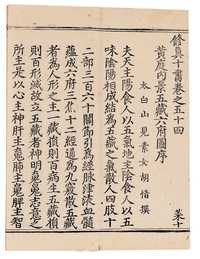 修真十書卷之五十四 菜十
黃庭內景五藏六府圖序
太白山見素女胡愔撰
夫天主陽食人以五氣地主陰食人以五
味陰陽相成結為五藏之氣散入四肢十
二部三百六十關節引為經脉津液血髓
蘊成六府三焦十二經通為九竅故五藏
者為人形之主一藏損則百病生五藏損
則百形滅故立五藏者神明魂魄志意之
所主是以心主神肝主魂肺主魄脾主智